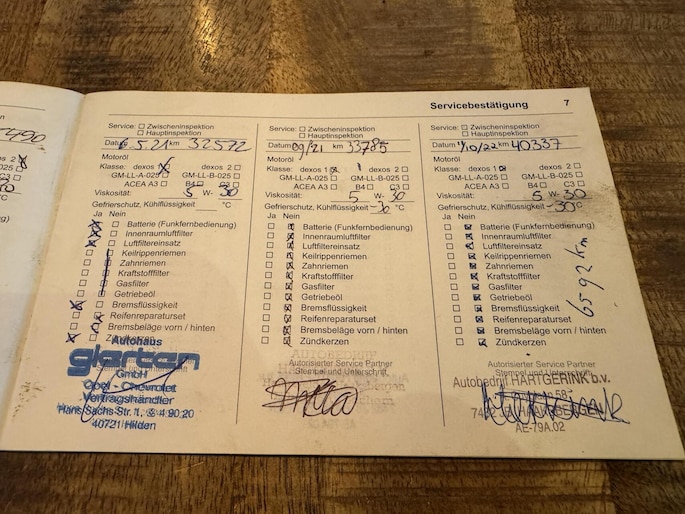 Servicebestätigung 7
Service: Zwischeninspektion
Hauptinspektion
5.21 km 32572
Motoröl
dexos 1 dexos 2
GM-LL-A-025 GM-LL-B-025
ACEA A3 B4 C3
Viskosität: 5 W- 30
Gefrierschutz, Kühlflüssigkeit °C
Ja Nein
Batterie (Funkfernbedienung)
Innenraumluftfilter
Luftfiltereinsatz
Keilrippenriemen
Zahnriemen
Kraftstofffilter
Gasfilter
Getriebeöl
Bremsflüssigkeit
Reifenreparaturset
Bremsbeläge vorn / hinten
Autohaus
glartan
GmbH
Opel - Chevrolet
Vertragshändler
Hans-Sachs-Str. 1, 4 90 20
40721 Hilden
Service: Zwischeninspektion
Hauptinspektion
Datum 09/21 km 33785
Motoröl
dexos 1 dexos 2
GM-LL-A-025 GM-LL-B-025
ACEA A3 B4 C3
Viskosität: 5 W- 30
Gefrierschutz, Kühlflüssigkeit -30 °C
Ja Nein
Batterie (Funkfernbedienung)
Innenraumluftfilter
Luftfiltereinsatz
Keilrippenriemen
Zahnriemen
Kraftstofffilter
Gasfilter
Getriebeöl
Bremsflüssigkeit
Reifenreparaturset
Bremsbeläge vorn / hinten
Zündkerzen
AUTOBEDRIJF
Autorisierter Service Partner
Stempel und Unterschrift
Service: Zwischeninspektion
Hauptinspektion
Datum 1/10/22 km 40337
Motoröl
dexos 1 dexos 2
GM-LL-A-025 GM-LL-B-025
ACEA A3 B4 C3
Viskosität: 5 W- 30
Gefrierschutz, Kühlflüssigkeit -30 °C
Ja Nein
Batterie (Funkfernbedienung)
Innenraumluftfilter
Luftfiltereinsatz
Keilrippenriemen
Zahnriemen
Kraftstofffilter
Gasfilter
Getriebeöl
Bremsflüssigkeit
Reifenreparaturset
Bremsbeläge vorn / hinten
Zündkerzen
6592 km
Autorisierter Service Partner
Stempel und Unterschrift
Autobedrijf HARTGERINK b.v.
AE-79A.02